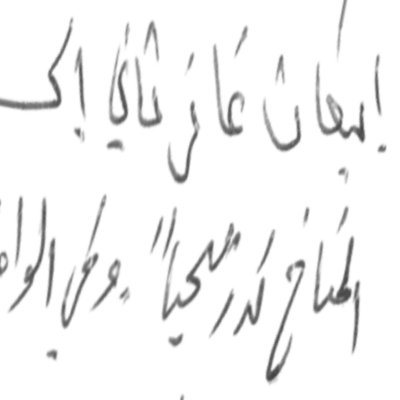 إنبعاث غاز ثاني إك
المناخ تدريجياً. وفي الوا